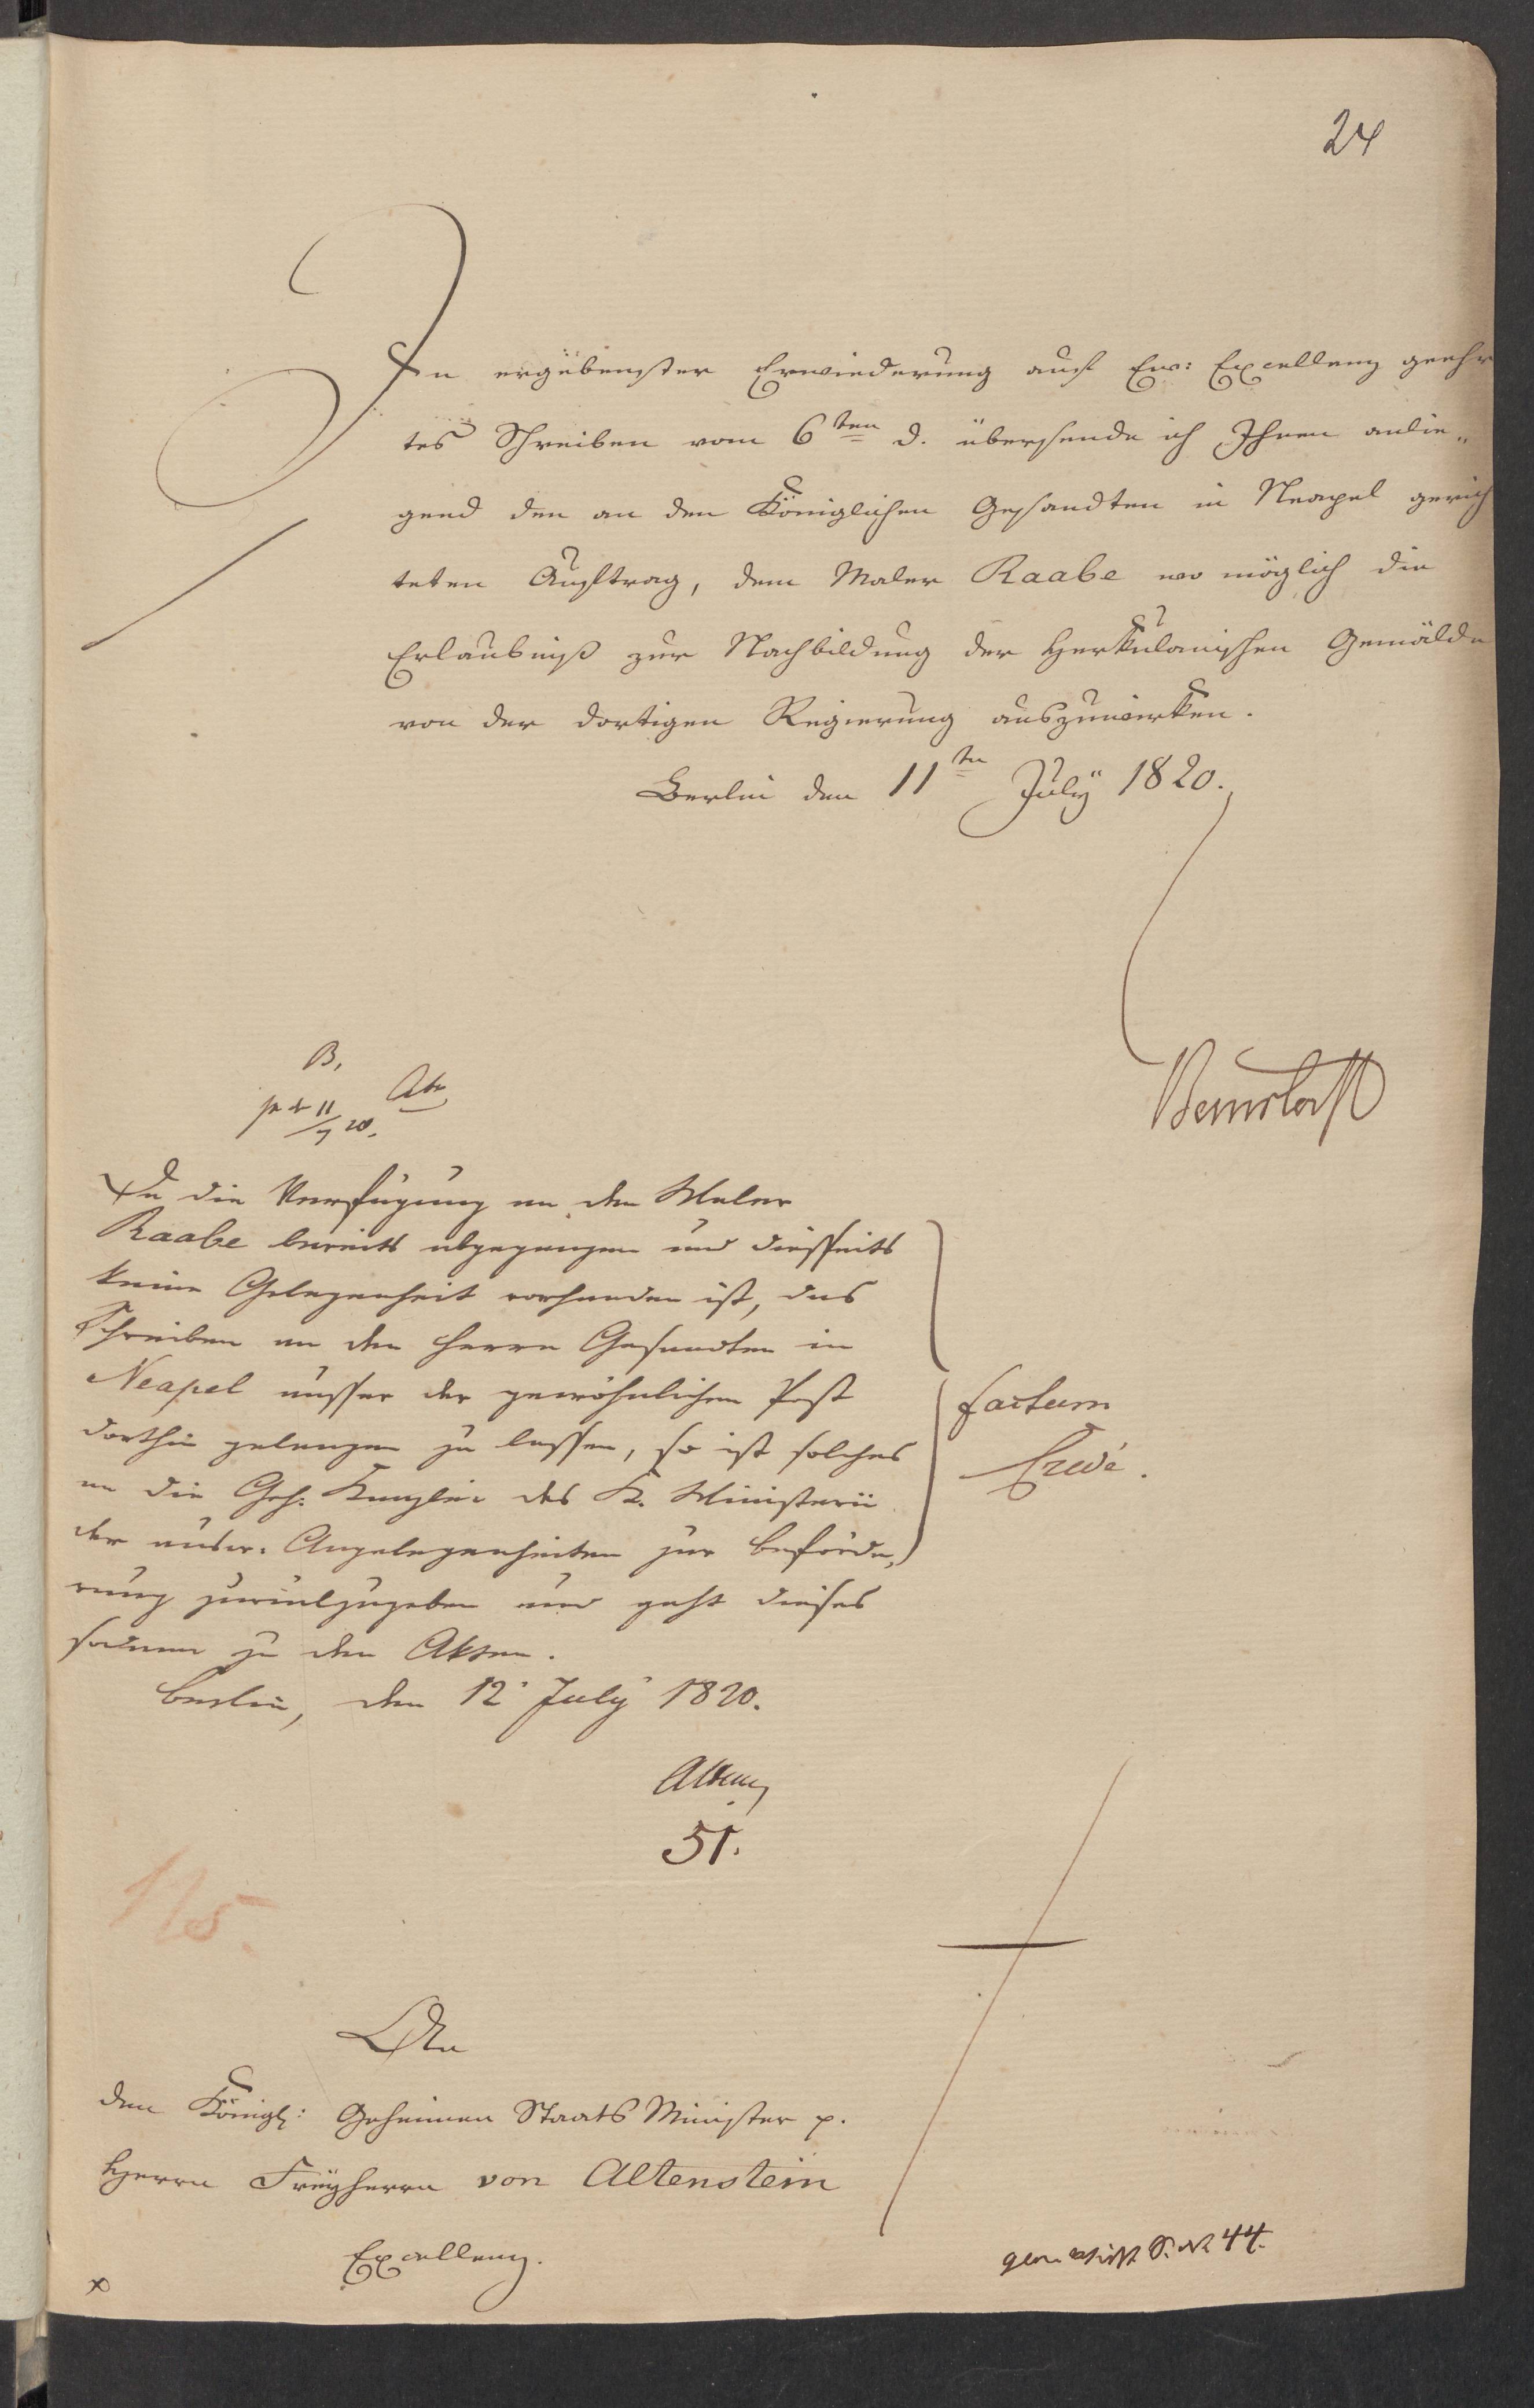 24
In ergebenster Erwiederung auf Ew: Excellenz geehr
tes Schreiben vom 6ten d. übersende ich Ihnen anlie„
gend den an den Königlichen Gesandten in Neapel gerich
teten Auftrag, dem Maler Raabe wo möglich die
Erlaubniß zur Nachbildung der Herkulanischen Gemälde
von der dortigen Regierung auszuwirken.
Berlin den 11ten July 1820.
Bernstorff
B.
11/7 20.
Da die Verfügung an den Maler
Raabe bereits abgegangen und diesseits
keine Gelegenheit vorhanden ist, das
Schreiben an den Herrn Gesandten in
Neapel ausser der gewöhnlichen Post
dorthin gelangen zu lassen, so ist solches
an die Geh. Kanzlei des K. Ministerii
der ausw. Angelegenheiten zur Beförde„
rung zurückzugeben und geht dieses
sodann zu den Akten.
Berlin, den 12 July 1820.
factum
51.
115.
An
den Königl: Geheimen Staats Minister p.
Herrn Freyherrn von Altenstein
Excellenz.
44.